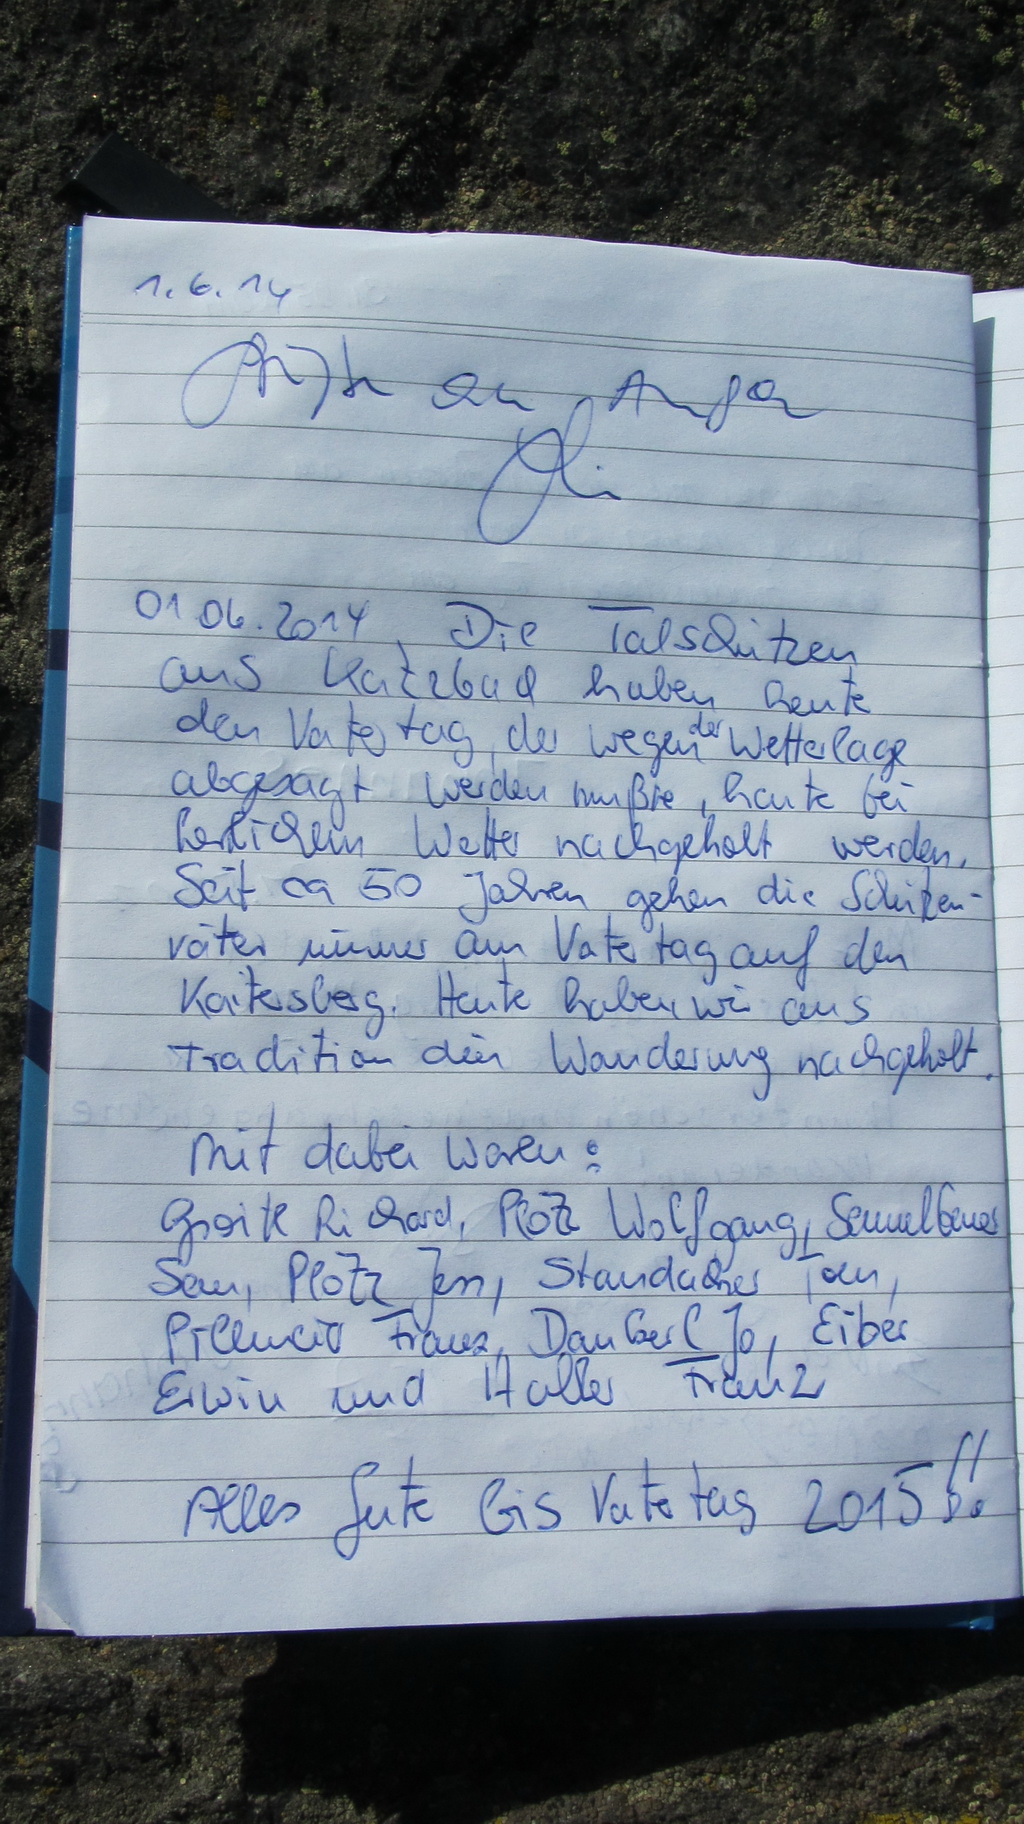 1.6.14
01.06.2014, Die Talschützen
aus Katzbach haben heute
den Vatertag, der wegen der Wetterlage
abgesagt werden mußte, heute bei
herlichem Wetter nachgeholt werden.
Seit ca 50 Jahren gehen die Schützen-
väter immer am Vatertag auf den
Kaitersberg. Heute haben wir aus
Tradition die Wanderung nachgeholt.
Mit dabei waren:
Richard, Plötz Wolfgang, Semmelbauer
Sam, Plötz Jen, Staudacher Tom,
Franz, Dankerl Jo, Eiber
Erwin und Haller Franz
Alles Gute bis Vatertag 2015!!